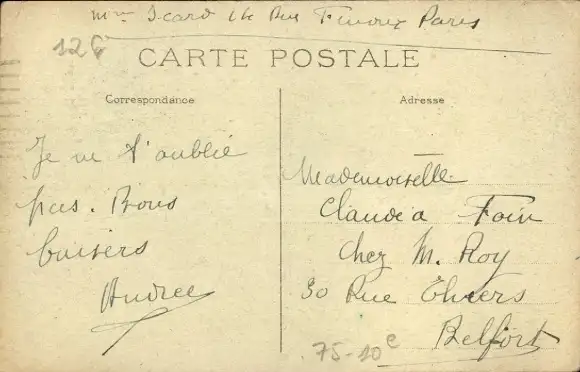 Mme Icard 14 Rue Paris
12 C
CARTE POSTALE
Correspondance
Je ne t'oublie
pas. Bons
baisers
Andrée
Adresse
Mademoiselle
Claudia Foin
chez M. Roy
30 Rue Thiers
Belfort
75-10c